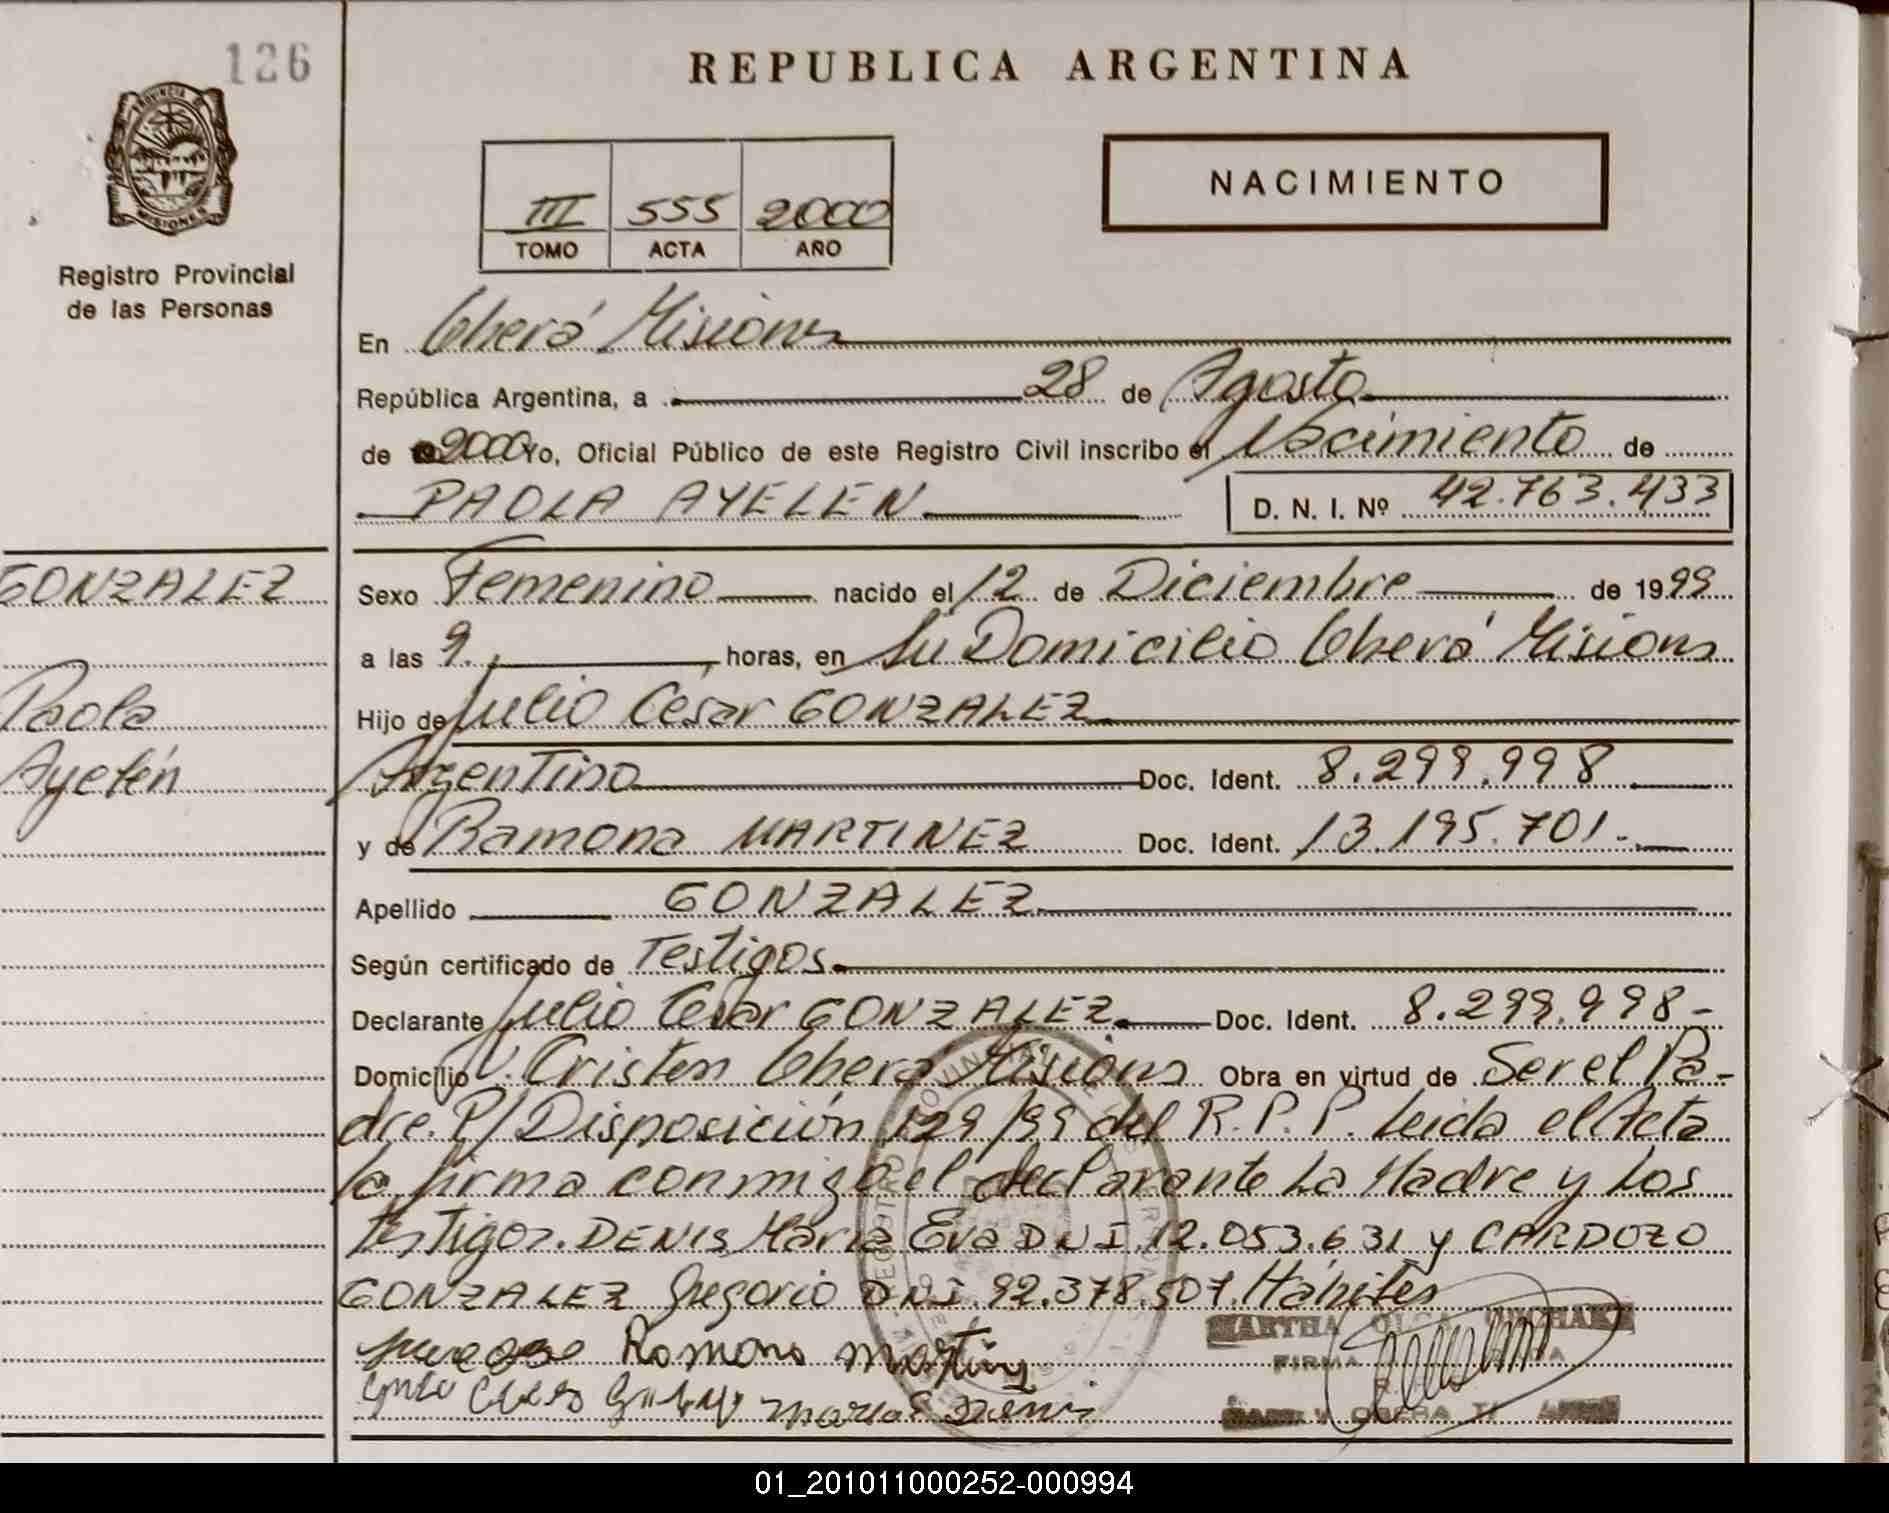 126
REPUBLICA ARGENTINA
PROVINCIA DE
MISIONES
Registro Provincial
de las Personas
III 555 2000
TOMO ACTA AÑO
NACIMIENTO
En Oberá Misiones
República Argentina, a 28 de Agosto
de 2000 Yo, Oficial Público de este Registro Civil inscribo el Nacimiento de
PAOLA AYELEN D. N. I. Nº 42.763.433
GONZALEZ
Paola
Ayelén
Sexo Femenino nacido el 12 de Diciembre de 1999
a las 9. horas, en Su Domicilio Oberá Misiones
Hijo de Julio César GONZALEZ
Argentino Doc. Ident. 8.299.998
y de Ramona MARTINEZ Doc. Ident. 13.195.701.-
Apellido GONZALEZ
Según certificado de Testigos
Declarante Julio Cesar GONZALEZ Doc. Ident. 8.299.998-
Domicilio V. Cristen Oberá Misiones Obra en virtud de Ser el Pa-
dre. P/ Disposición 129/99 del R.P.P. Leida el Acta
la firma conmigo el declarante La Madre y Los
Testigos. DENIS Maria Eva DNI 12.053.631 y CARDOZO
GONZALEZ Gregorio DNI. 92.378.507. Hábiles
Romona Martinez
Maria E Denis
MARTHA OLGA
FIRMA
01_201011000252-000994